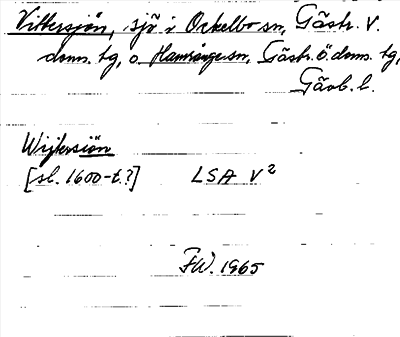 Vittersjön, sjö i Ockelbo sn, Gästr. V.
doms. tg, o. Hamrånge sn, Gästr. Ö. doms. tg,
Gävl. l.
Wijtersiön
[sl. 1600-t.?] LSA V²
FW. 1965